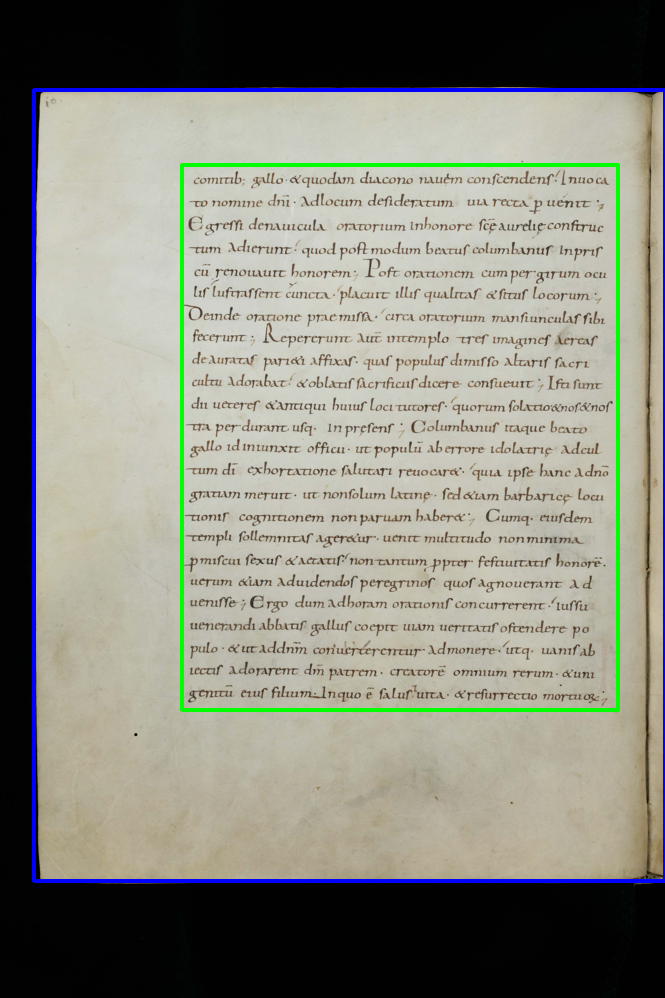 10.
comitib; gallo · & quodam diacono nauem conscendens · Inuoca
to nomine dnī · Ad locum desideratum uia recta p̱ uenit ;
Egressi de nauicula oratorium in honore scē aurelię construc
tum Adierunt · quod post modum beatus columbanus In pris
cū renouauit honorem ; Post orationem cum per girum ocu
lis lustrassent cuncta · placuit illis qualitas & situs locorum ;
Deinde oratione praemissa · circa oratorium mansiunculas sibi
fecerunt ; Repererunt aut̄ in templo tres imagines aereas
deauratas pari&i affixas · quas populus dimisso altaris sacri
cultu Adorabat · & oblatis sacrificiis dicere consueuit ; Isti sunt
dii ueteres & antiqui huius loci tutores · quorum solatio & nos & nos
tra per durant usq · in presens ; Columbanus itaque beato
gallo id iniunxit officii · ut populū ab errore idolatrię Ad cul
tum dī exhortatione salutari reuocar& · quia ipse hanc A dnō
gratiam meruit · ut non solum latinę · sed &iam barbaricę locu
tionis cognitionem non paruam haber& ; Cumq · eiusdem
templi sollemnitas ager&ur · uenit multitudo non minima
p̱miscui sexus & aetatis · non tantum p̱pter festiuitatis honorē ·
uerum &iam Ad uidendos peregrinos quos agnouerant Ad
uenisse ; Ergo dum Ad horam orationis concurrerent · iussu
uenerandi abbatis gallus coepit uiam ueritatis ostendere po
pulo · & ut ad dn̄m conuerterentur Admonere · utq · uanis ab
iectis Adorarent dm̄ patrem · creatorē omnium rerum · & uni
genitū eius filium In quo ē salus uita · & resurrectio mortuoꝝ ;